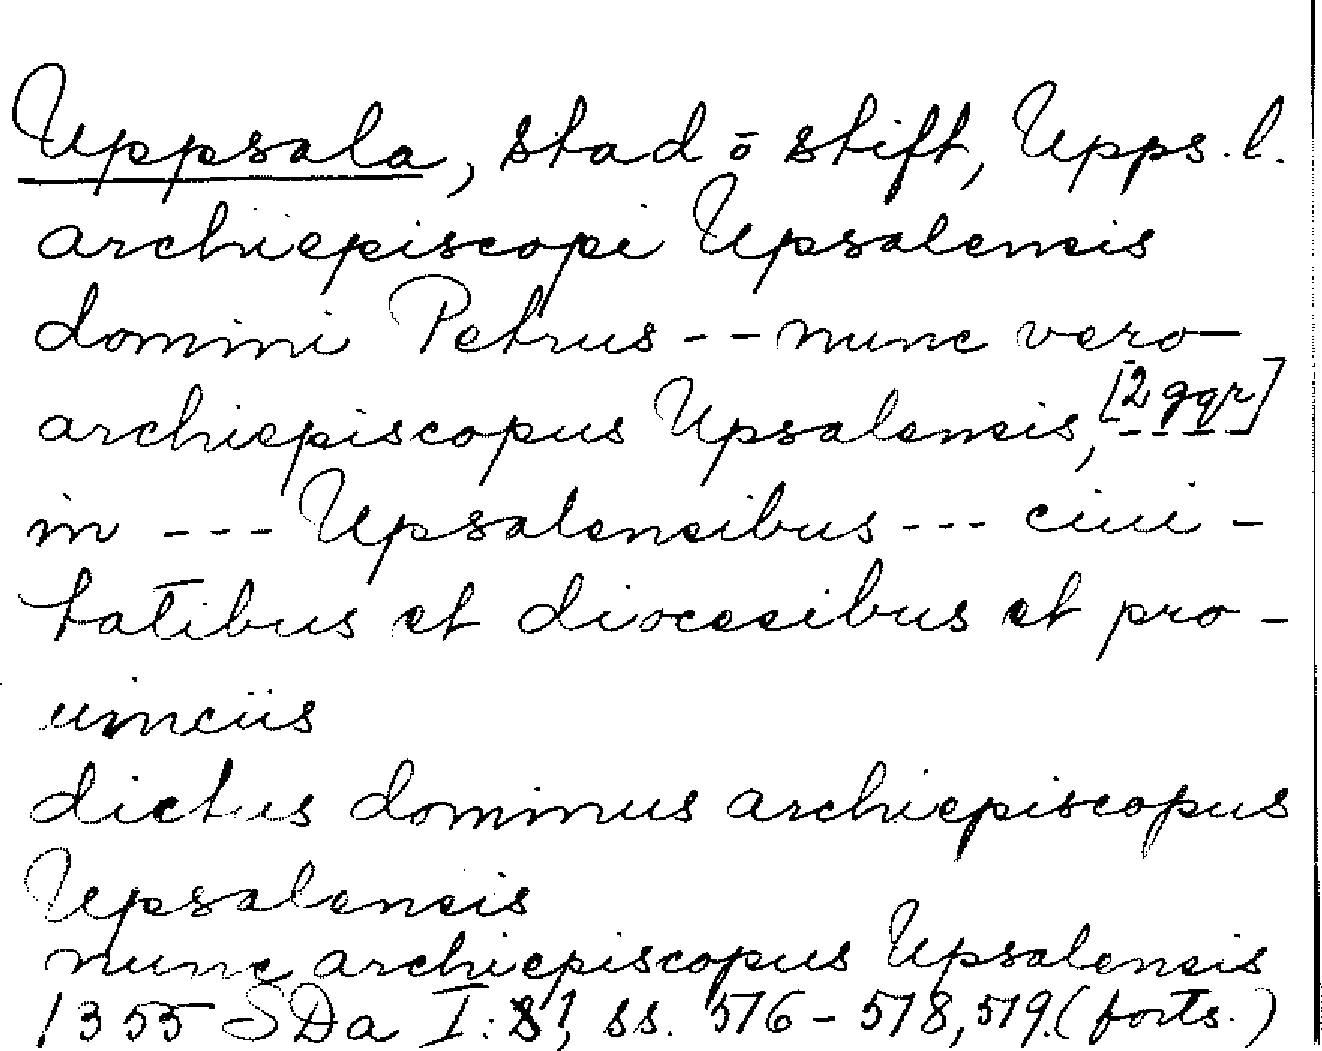 Uppsala, stad ō stift, Upps. l.
archiepiscopi Upsalensis
domini Petrus -- nunc vero
archiepiscopus Upsalensis, [2 ggr]
in --- Upsalensibus --- ciui-
tatibus et diocesibus et pro-
uinciis
dictus dominus archiepiscopus
Upsalensis
nunc archiepiscopus Upsalensis
1355 SDa I: ss. 576-578, 519. (forts.)